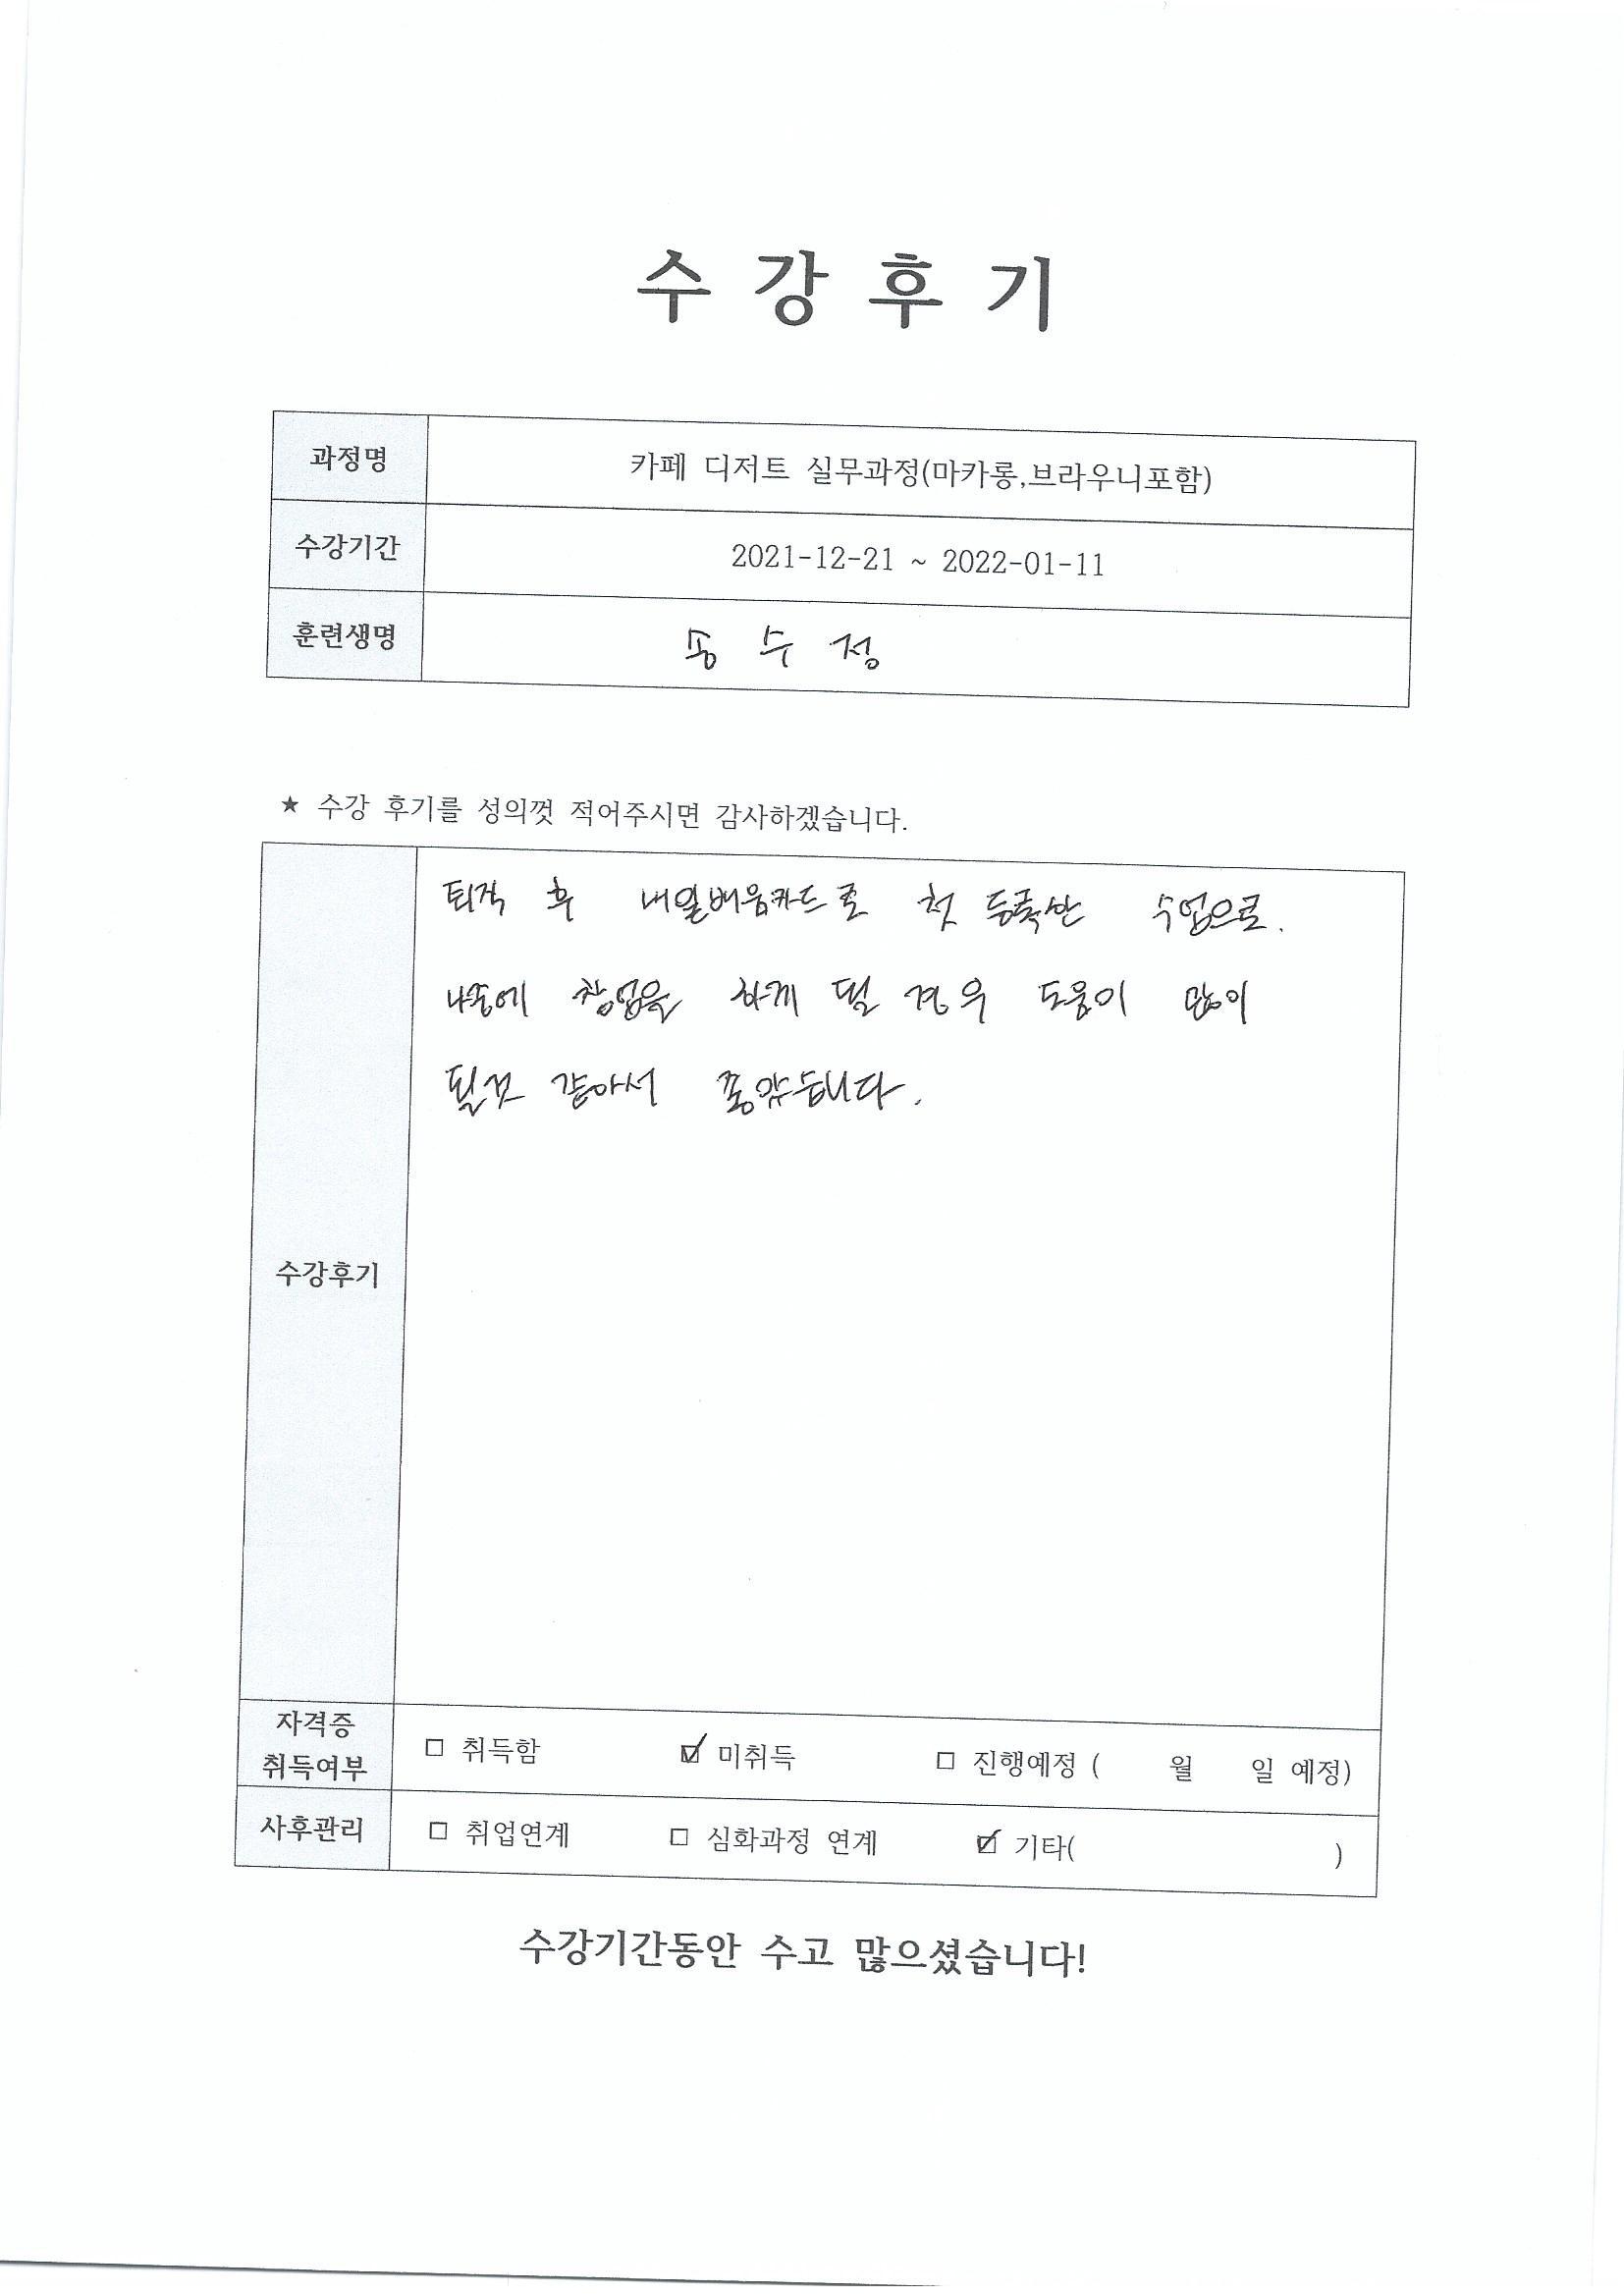 수강후기
과정명 카페 디저트 실무과정(마카롱,브라우니포함)
수강기간 2021-12-21 ~ 2022-01-11
훈련생명 송수정
★ 수강 후기를 성의껏 적어주시면 감사하겠습니다.
퇴직 후 내일배움카드로 첫 등록한 수업으로.
나중에 창업을 하게 될 경우 도움이 많이
될것 같아서 좋았습니다.
수강후기
자격증
취득여부 □ 취득함 ☑ 미취득 □ 진행예정 ( 월 일 예정)
사후관리 □ 취업연계 □ 심화과정 연계 ☑ 기타( )
수강기간동안 수고 많으셨습니다!